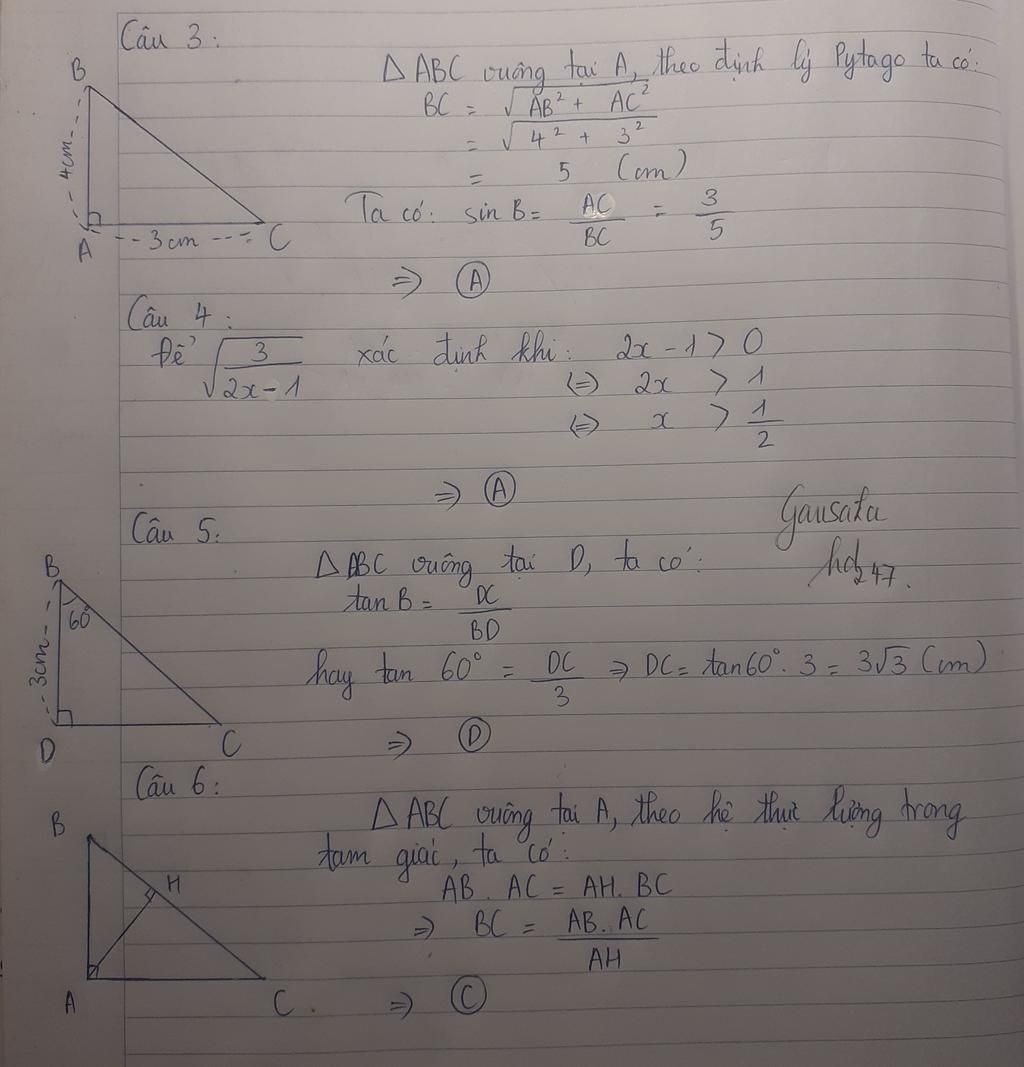 Câu 3:
B
4cm
A
3cm
C
Δ ABC vuông tại A, theo định lý Pytago ta có:
BC = √(AB² + AC²)
= √(4² + 3²)
= 5 (cm)
Ta có: sin B = AC/BC = 3/5
⇒ Ⓐ
Câu 4:
Để √(3/(2x-1)) xác định khi: 2x - 1 > 0
⇔ 2x > 1
⇔ x > 1/2
⇒ Ⓐ
Gausata
hd247.
Câu 5:
B
60°
3cm
D
C
Δ DBC vuông tại D, ta có:
tan B = DC/BD
hay tan 60° = DC/3 ⇒ DC = tan60°. 3 = 3√3 (cm)
⇒ Ⓓ
Câu 6:
B
H
A
C
Δ ABC vuông tại A, theo hệ thức lượng trong
tam giác, ta có:
AB. AC = AH. BC
⇒ BC = AB. AC/AH
⇒ Ⓒ